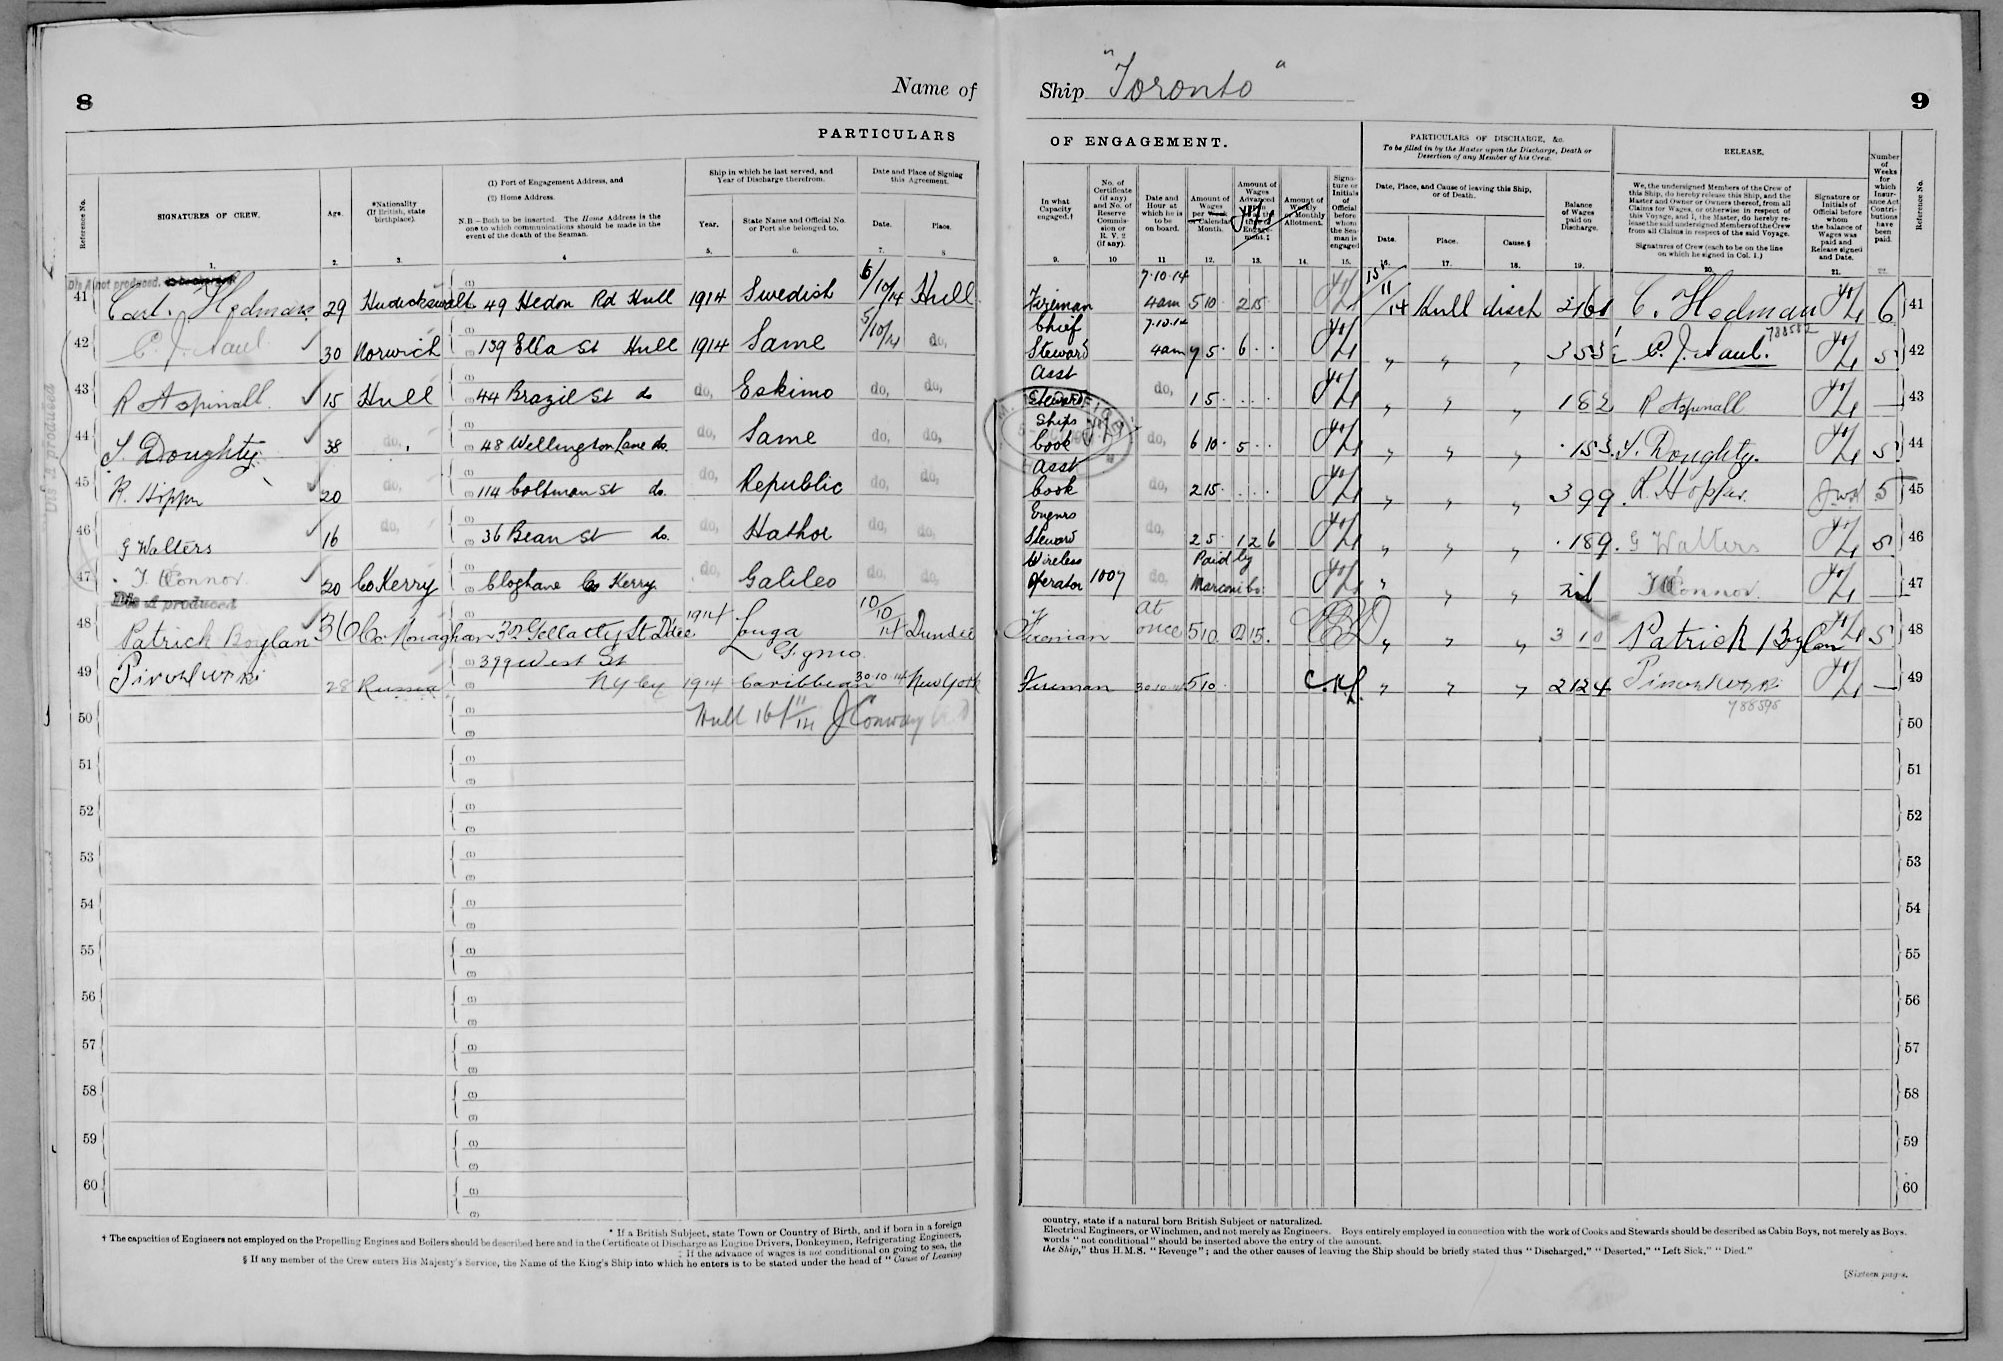 8
Name of
Ship "Toronto"
9
PARTICULARS
OF ENGAGEMENT.
PARTICULARS OF DISCHARGE, &c.
To be filled in by the Master upon the Discharge, Death or
Desertion of any Member of his Crew.
RELEASE.
Reference No.
SIGNATURES OF CREW.
Age.
*Nationality
(If British, state
birthplace).
(1) Port of Engagement Address, and
(2) Home Address.
N.B—Both to be inserted. The Home Address is the
one to which communications should be made in the
event of the death of the Seaman.
Ship in which he last served, and
Year of Discharge therefrom.
Year.
State Name and Official No.
or Port she belonged to.
Date and Place of Signing
this Agreement.
Date.
Place.
In what
Capacity
engaged.†
No. of
Certificate
(if any)
and No. of
Reserve
Commis-
sion or
R. V. 2
(if any).
Date and
Hour at
which he is
to be
on board.
Amount of
Wages
per Week
or Calendar
Month.
Amount of
Wages
Advanced
Amount of
Weekly
or Monthly
Allotment.
Signa-
ture or
Initials
of
Official
before
whom
the Sea-
man is
engaged
Date, Place, and Cause of leaving this Ship,
or of Death.
Date.
Place.
Cause.§
Balance
of Wages
paid on
Discharge.
We, the undersigned Members of the Crew of
this Ship, do hereby release this Ship, and the
Master and Owner or Owners thereof, from all
Claims for Wages, or otherwise in respect of
this Voyage, and I, the Master, do hereby re-
lease the said undersigned Members of the Crew
from all Claims in respect of the said Voyage.
Signatures of Crew (each to be on the line
on which he signed in Col. 1.)
Signature or
Initials of
Official before
whom
the balance of
Wages was
paid and
Release signed
and Date.
Number
of
Weeks
for
which
Insur-
ance Act
Contri-
butions
have
been
paid.
Reference No.
1. 2. 3. 4 5. 6. 7. 8 9. 10 11 12. 13. 14. 15. 16. 17. 18. 19. 20. 21. 22.
Dis A not produced.
41 Carl. Hedman 29 Hudickswalt 49 Hedon Rd Hull 1914 Swedish 6/10/14 Hull Fireman 7.10.14 4am 5 10 2 15 15/11/14 Hull disch 3 16 1 C. Hedman 6 41
42 C. J. Paul 30 Norwich 139 Ella St Hull 1914 Same 5/10/14 do, Chief Steward 7.10.14 4am 7 5 . 6 . . " " " 3 5 3 C. J. Paul. 788582 5 42
43 R Aspinall 15 Hull 44 Brazil St do do, Eskimo do, do, Asst Steward do, 1 5 . " " " 1 8 2 R Aspinall — 43
44 Doughty 38 do, 48 Wellington Lane do. do, Same do, do, Ships Cook do, 6 10 . 5 . . " " " . 15 3 Doughty. 5 44
45 R. 20 do, 114 Coltman St do. do, Republic do, do, Asst Cook do, 2 15 . " " " 3 9 9 5 45
46 G Walters 16 do, 36 Bean St do. do, Hathor do, do, Engnrs Steward do, 2 5 . 1 2 6 " " " . 18 9 G Walters 5 46
47 T. OConnor 20 Co Kerry Cloghane Co Kerry do, Galileo do, do, Wireless Operator 1007 do, Paid by Marconi Co: " " " nil T OConnor. — 47
Dis A produced
48 Patrick Boylan 36 Co. Monaghan 32 Gellatly St D'dee 1914 Longa 10/10/14 Dundee Fireman at once 5 10 2 15. " " " 3 1 Patrick Boylan 5 48
49 28 Russia 399 West St N Y City 1914 Caribbean 30.10.14 New York Fireman 30.10.14 5 10 " " " 2 12 4 — 49
788595
50 Hull 16/11/14 J Conway 50
51 51
52 52
53 53
54 54
55 55
56 56
57 57
58 58
59 59
60 60
* If a British Subject, state Town or Country of Birth, and if born in a foreign
country, state if a natural born British Subject or naturalized.
† The capacities of Engineers not employed on the Propelling Engines and Boilers should be described here and in the Certificate of Discharge as Engine Drivers, Donkeymen, Refrigerating Engineers,
Electrical Engineers, or Winchmen, and not merely as Engineers. Boys entirely employed in connection with the work of Cooks and Stewards should be described as Cabin Boys, not merely as Boys.
‡ If the advance of wages is not conditional on going to sea, the
words "not conditional" should be inserted above the entry of the amount.
§ If any member of the Crew enters His Majesty's Service, the Name of the King's Ship into which he enters is to be stated under the head of "Cause of Leaving
the Ship," thus H.M.S. "Revenge"; and the other causes of leaving the Ship should be briefly stated thus "Discharged," "Deserted," "Left Sick," "Died."
[Sixteen pages.